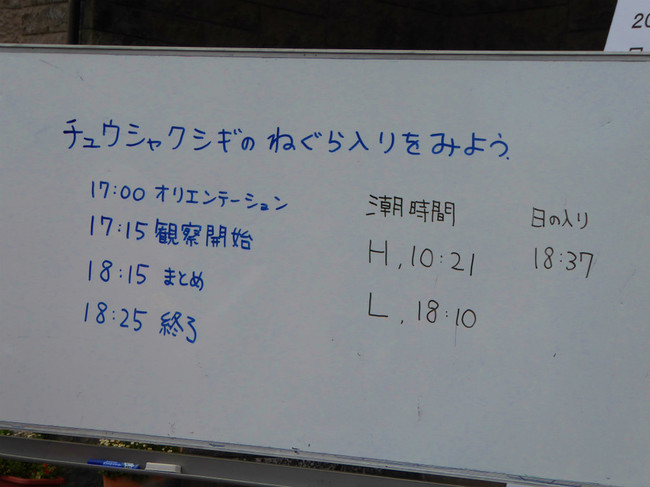 チュウシャクシギの ねぐら入りをみよう.
17:00 オリエンテーション
17:15 観察開始
18:15 まとめ
18:25 終了
潮時間
H, 10:21
L, 18:10
日の入り
18:37
20